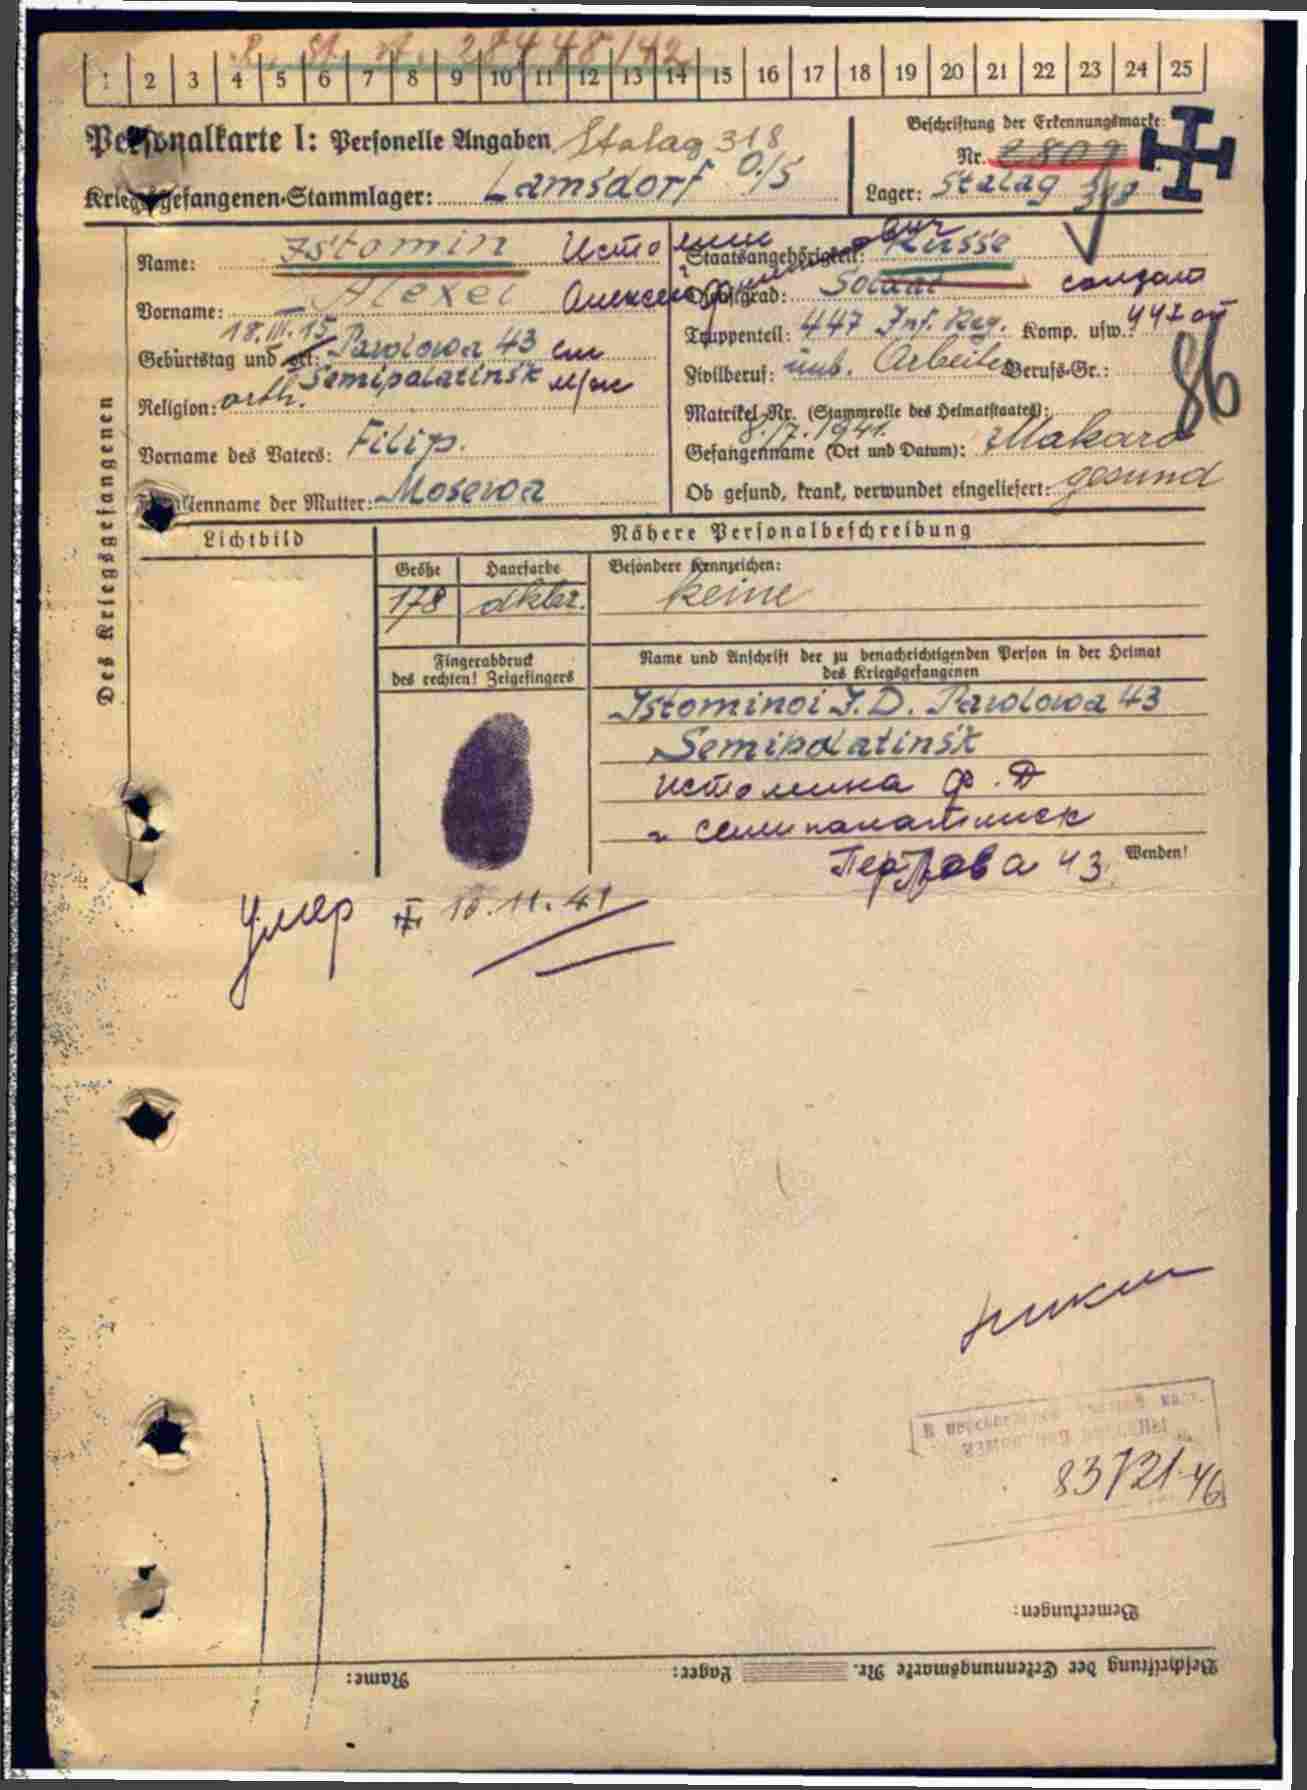 R. St. A. 28448/42
1 2 3 4 5 6 7 8 9 10 11 12 13 14 15 16 17 18 19 20 21 22 23 24 25
Personalkarte I: Personelle Angaben Stalag 318
Kriegsgefangenen-Stammlager: Lamsdorf O/S
Beschriftung der Erkennungsmarke:
Nr. 2809
Lager: Stalag 318
Des Kriegsgefangenen
Name: Istomin Истомин
Vorname: Alexei Алексей
Geburtstag und -ort: 18.III.15 Pawlowa 43
Semipalatinsk
Religion: orth.
Vorname des Vaters: Filip.
Familienname der Mutter: Mosewa
Staatsangehörigkeit: Russe
Dienstgrad: Soldat солдат
Truppenteil: 447 Inf. Reg. Komp. usw.: 447
Zivilberuf: Arbeiter Berufs-Gr.:
86
Matrikel Nr. (Stammrolle des Heimatstaates):
Gefangennahme (Ort und Datum): 8./7.1941. Makaro
Ob gesund, krank, verwundet eingeliefert: gesund
Lichtbild
Nähere Personalbeschreibung
Größe Haarfarbe Besondere Kennzeichen:
178 dklbr. keine
Fingerabdruck
des rechten! Zeigefingers
Name und Anschrift der zu benachrichtigenden Person in der Heimat
des Kriegsgefangenen
Istominoi F.D. Pawlowa 43
Semipalatinsk
Истомина Ф.Д
г Семипалатинск
43
Wenden!
Умер 10.11.41
83721-46
Bemerkungen:
Beschriftung der Erkennungsmarke Nr. Lager: Name: